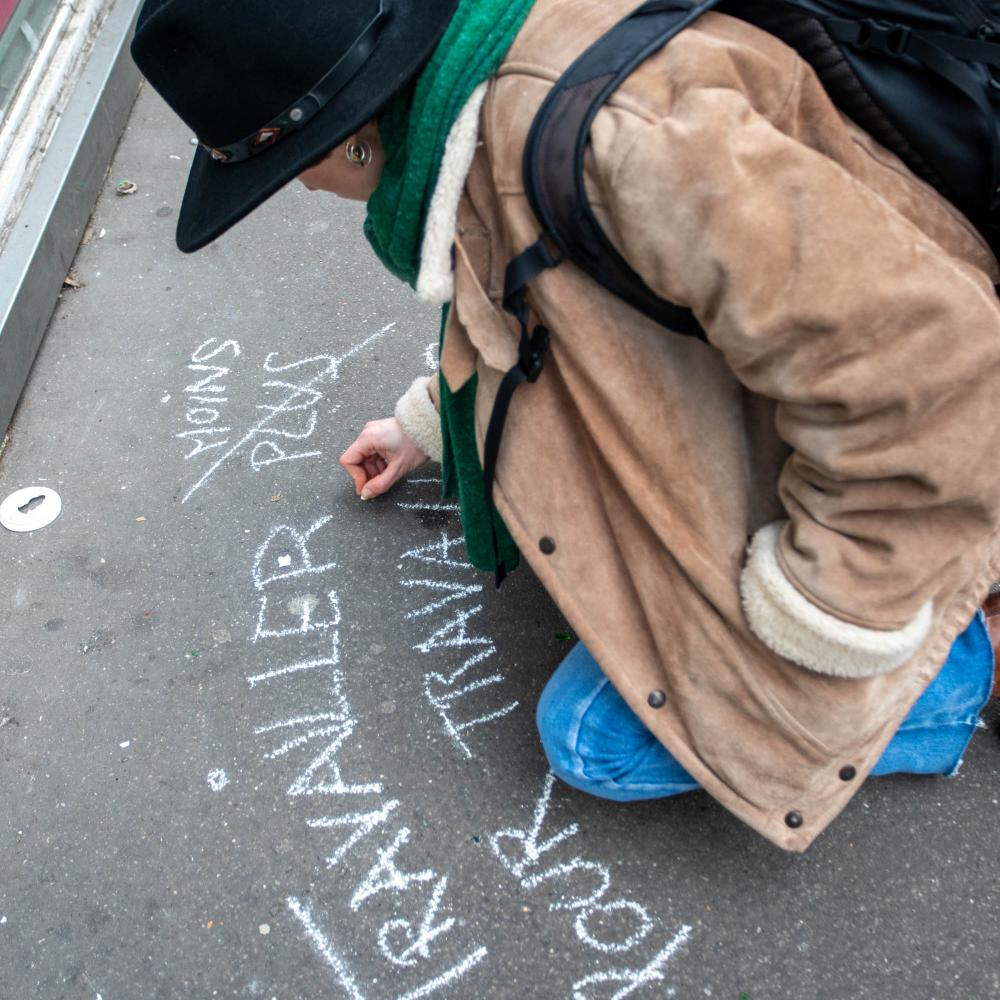 MOINS
TRAVAILLER PLUS
POUR TRAVAI